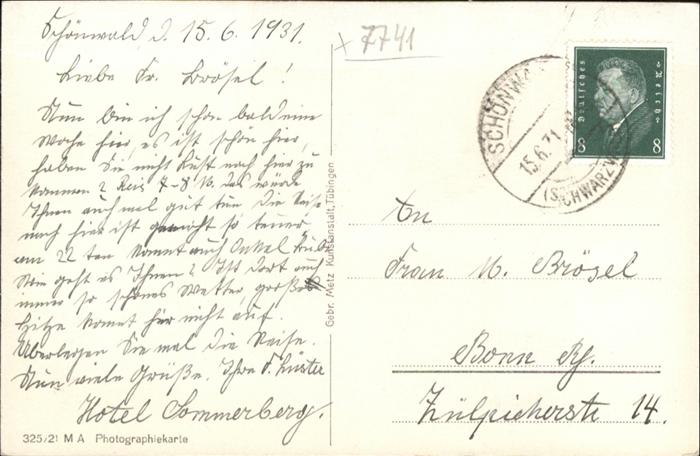 Schönwald, d. 15.6.1931.
Liebe Fr. Brösel!
Nun bin ich schon bald eine
Woche hier, es ist schön hier,
haben Sie nicht Lust noch hier zu
kommen? Preis 7-8 M. das würde
Ihnen auch mal gut tun. Die Reise
nach hier ist garnicht so teuer
am 22 ten kommt auch Onkel
Wie geht es Ihnen? Ist dort auch
immer so schönes Wetter, große
Hitze kommt hier nicht auf.
Überlegen Sie mal die Reise.
Nun viele Grüße. Ihre F. Küster
Hotel Sommerberg.
325/21 M A Photographiekarte
Gebr. Metz Kunstanstalt, Tübingen
x 7741
SCHÖNWA
15.6.31
(SCHWARZW
Deutsches Reich
8 8
An
Frau M. Brösel
Bonn Rh.
Zülpicherstr 14.